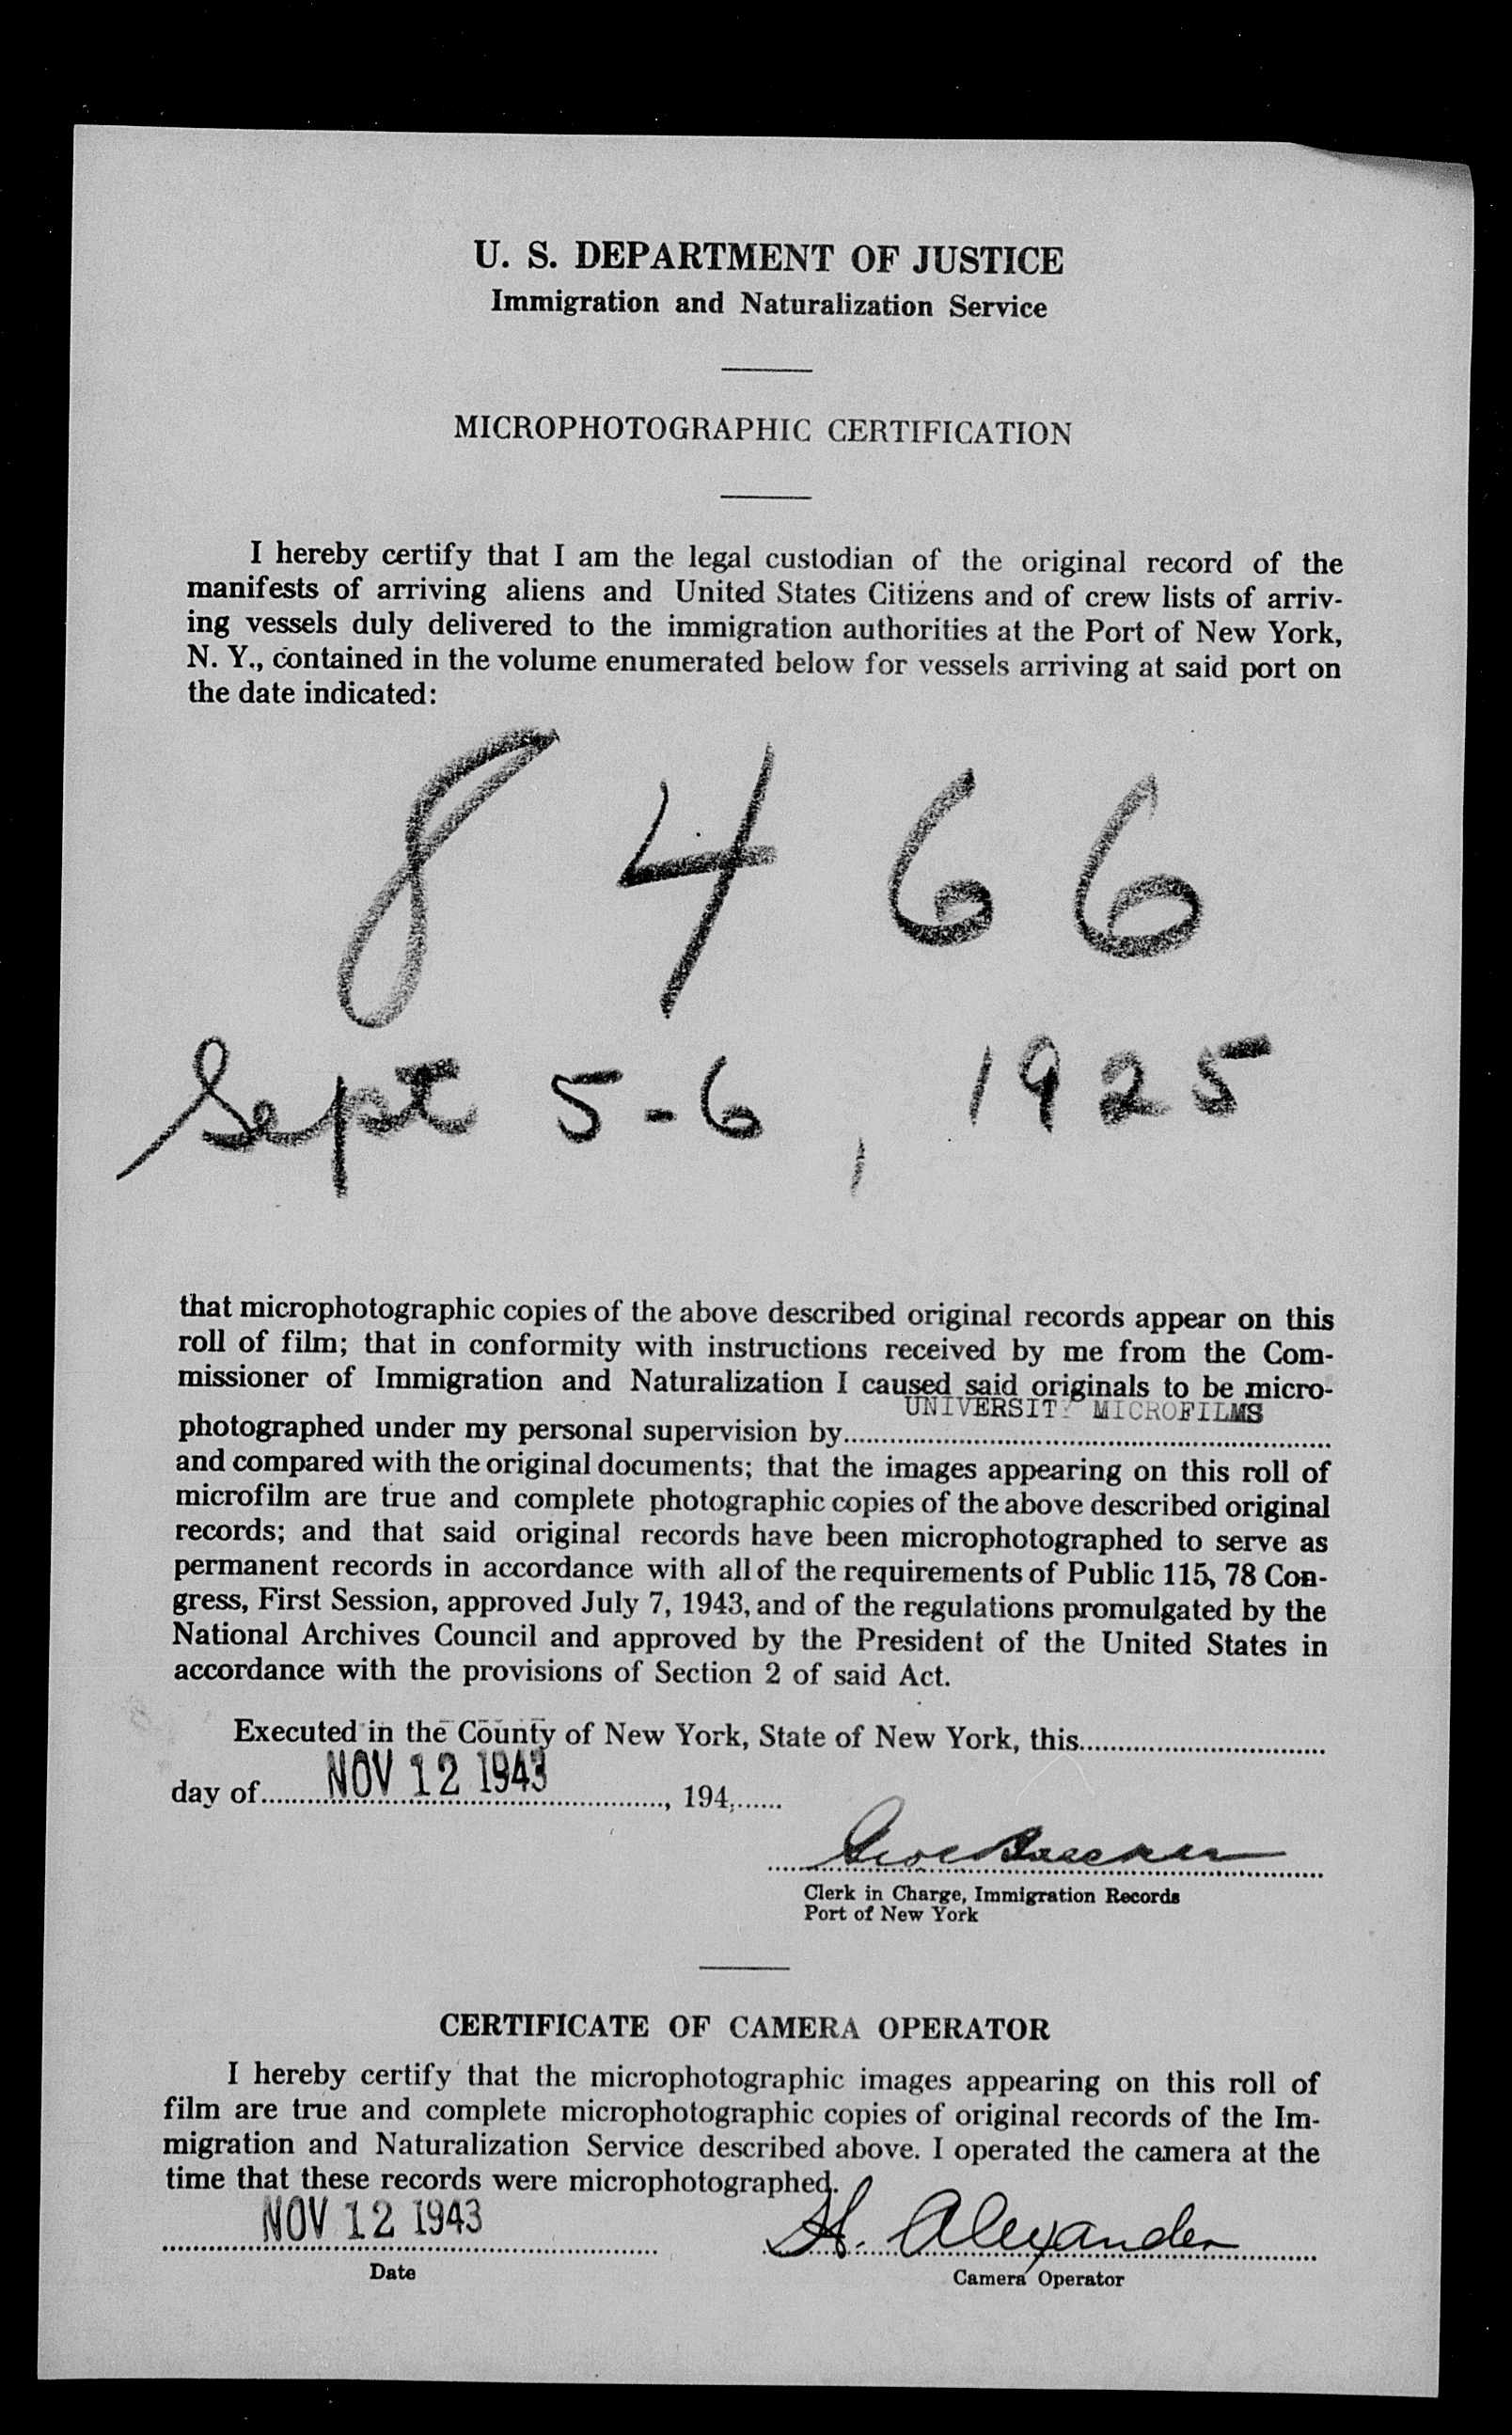 U. S. DEPARTMENT OF JUSTICE
Immigration and Naturalization Service
MICROPHOTOGRAPHIC CERTIFICATION
I hereby certify that I am the legal custodian of the original record of the
manifests of arriving aliens and United States Citizens and of crew lists of arriv-
ing vessels duly delivered to the immigration authorities at the Port of New York,
N. Y., contained in the volume enumerated below for vessels arriving at said port on
the date indicated:
8 4 6 6
Sept 5-6, 1925
that microphotographic copies of the above described original records appear on this
roll of film; that in conformity with instructions received by me from the Com-
missioner of Immigration and Naturalization I caused said originals to be micro-
UNIVERSITY MICROFILMS
photographed under my personal supervision by
and compared with the original documents; that the images appearing on this roll of
microfilm are true and complete photographic copies of the above described original
records; and that said original records have been microphotographed to serve as
permanent records in accordance with all of the requirements of Public 115, 78 Con-
gress, First Session, approved July 7, 1943, and of the regulations promulgated by the
National Archives Council and approved by the President of the United States in
accordance with the provisions of Section 2 of said Act.
Executed in the County of New York, State of New York, this
day of NOV 12 1943, 194
Clerk in Charge, Immigration Records
Port of New York
CERTIFICATE OF CAMERA OPERATOR
I hereby certify that the microphotographic images appearing on this roll of
film are true and complete microphotographic copies of original records of the Im-
migration and Naturalization Service described above. I operated the camera at the
time that these records were microphotographed.
NOV 12 1943 H. Alexander
Date Camera Operator